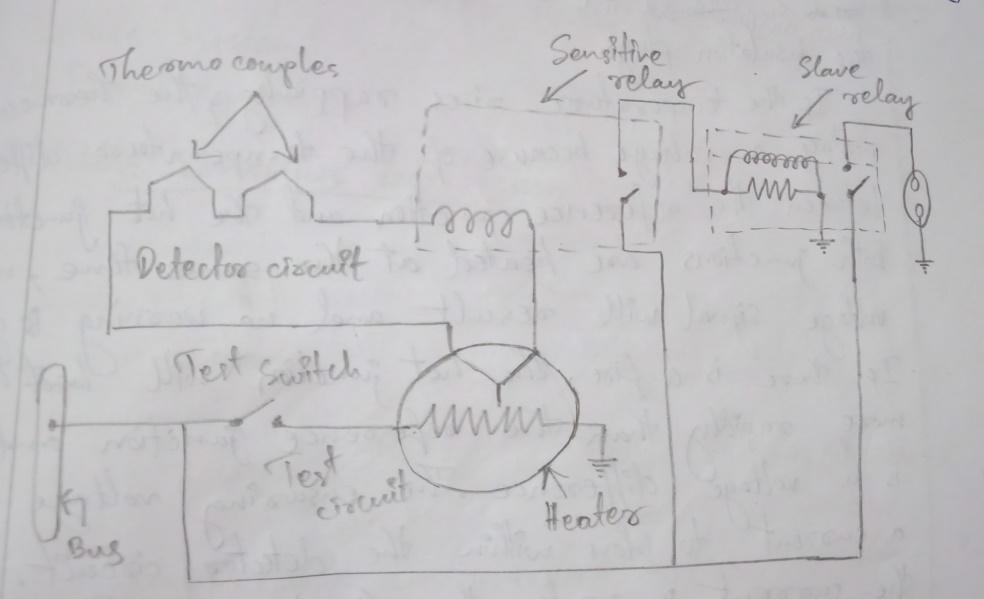 Thermocouples
Sensitive
relay
Slave
relay
Detector circuit
Test switch
Test
circuit
Heater
Bus